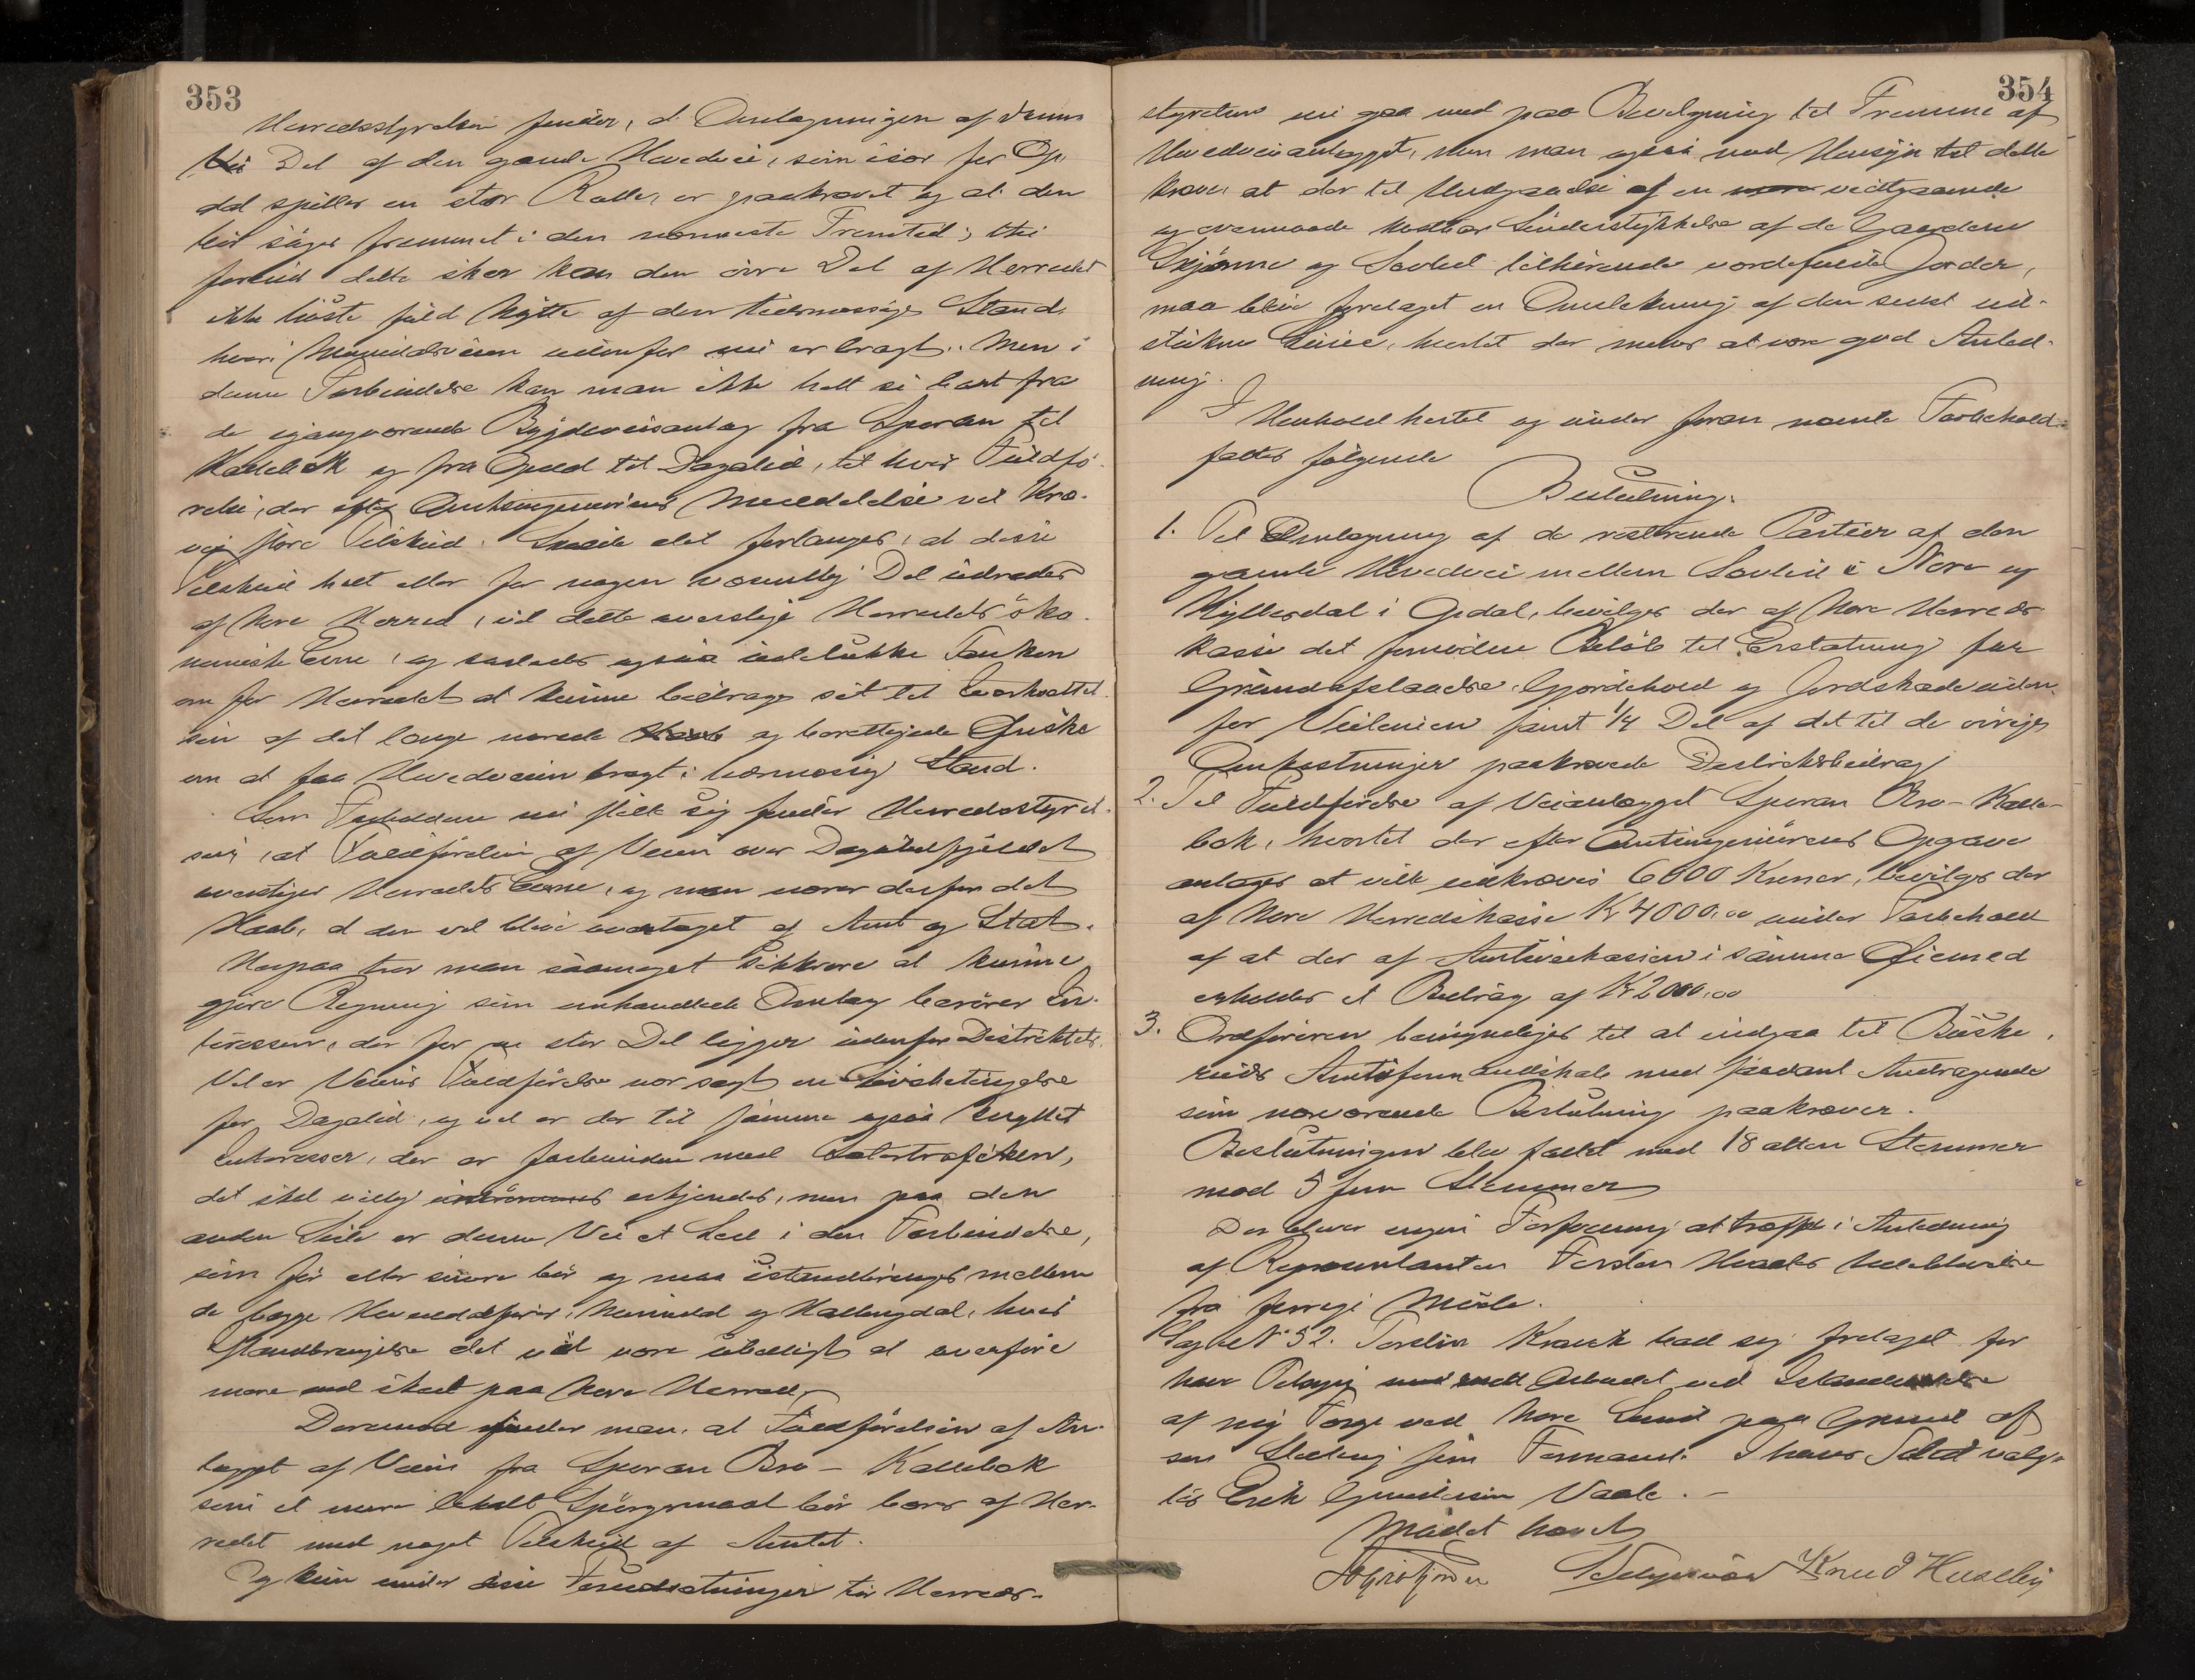 353
Herredsstyrelsen finder, at Omlægningen af denne
Del af den gamle Hovedvei, som især for Op-
dal spiller en stor Rolle, er paakrævet og at den
bør søges fremmet i den nærmeste Fremtid; thi
forend dette sker kan den øvre Del af Herredet
ikke høste fuld Nytte af den tidsmæssige Stand,
hvori Numedalsveien udenfor nu er bragt. Men i
denne Forbindelse kan man ikke helt se bort fra
de igangværende Bygdeveisanlæg fra Sporan til
Kallebæk og fra Opdal til Dagalid, til hvis Fuldfø-
relse, der efter Amtsingeniørens Meddelelse vil kræ-
ves store Tilskud. Skulde det forlanges, at disse
Tilskud helt eller for nogen væsentlig Del udredes
af Nore Herred, vil dette overstige Herredets øko-
nomiske Evne, og saaledes ogsaa udelukke Tanken
om for Herredet at kunne bidrage sit til Iverksættel-
sen af det længe nærede og berettigede Ønske
om at faa Hovedveien bragt i tidsmæssig Stand.
Som Forholdene nu stille sig finder Herredsstyrel-
sen, at Fuldførelsen af Veien over Dagalifjeldet
overstiger Herredets Evne, og man nærer derfor det
Haab, at den vil blive overtaget af Amt og Stat.
Herpaa tror man saameget sikkrere at kunne
gjøre Regning som omhandlede Anlæg berører In-
teresser, der for en stor Del ligger udenfor Distriktet.
Vel er Veiens Fuldførelse nær sagt en Livsbetingelse
for Dagalid, og vel er der til samme ogsaa knyttet
Interesser, der er forbunden med Sætertrafikken,
det skal villig erkjendes, men paa den
anden Side er denne Vei et Led i den Forbindelse,
som før eller senere bør og maa istandbringes mellem
de begge Hoveddalfører, Numedal og Hallingdal, hvis
Istandbringelse det vil være ubilligt at overføre
mere end skeet paa Nore Herred.
Derimod finder man, at Fuldførelsen af An-
lægget af Veien fra Sporan Bro – Kallebæk
som et mere lokalt Spørgsmaal bør bæres af Her-
redet med noget Tilskud af Amtet.
Og kun under disse Forudsætninger tør Herreds-
354
styrelsen nu gaa med paa Bevilgning til Fremme af
Hovedveianlægget, men man ogsaa med Hensyn til dette
kræve, at der til Undgaaelse af en vidtgaaende
og overmaade kostbar Sønderstykkelse af de Gaardene
Skjønne og Savlid tilhørende værdefulde Jorder,
maa blive foretaget en Omstikning af den sidst ud-
stukne Linie, hvortil der menes at være god Anled-
ning.
I Henhold hertil og under foran nævnte Forbehold
fattes følgende
Beslutning:
1. Til Omlægning af de resterende Partier af den
gamle Hovedvei mellem Savlid i Nore og
Kyllesdal i Opdal, bevilges der af Nore Herreds-
kasse det fornødne Beløb til Erstatning for
Grundafstaaelse, Gjærdehold og Jordskade uden-
for Veilinien samt 1/4 Del af det til de øvrige
Omkostninger paakrævede Distriktsbidrag
2. Til Fuldførelse af Veianlægget Sporan Bro – Kalle-
bæk, hvortil der efter Amtsingeniørens Opgave
antages at ville udkræves 6000 Kroner, bevilges der
af Nore Herredskasse Kr 4000,00 under Forbehold
af at der af Amtsveikassen i samme Øiemed
erholdes et Bidrag af Kr 2000,00
3. Ordføreren bemyndiges til at indgaa til Buske-
ruds Amtsformandskab med saadant Andragende
som nærværende Beslutning paakræver.
Beslutningen blev fattet med 18 atten Stemmer
mod 5 fem Stemmer
Der blev ingen Forføining at træffe i Anledning
af Repræsentanten Torsten Udeblivelse
fra forrige Møde.
Sag No 52. Torsten Kravik bad sig fritaget for
have Tilsyn Arbeidet ved
af ny Færge ved Nore Sund paa Grund af
sin Stilling som Formand. I hans Sted valg-
tes Erik Gundersen Vaale. –
Mødet hævet
Knud Huseby